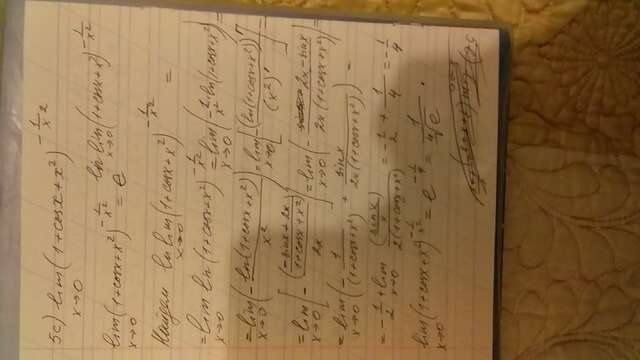 5c) lim x→0 (1+cosx+x²)^(-1/x²)
lim x→0 (1+cosx+x²)^(-1/x²) = e^(ln lim x→0 (1+cosx+x²)^(-1/x²))
Найдём ln lim x→0 (1+cosx+x²)^(-1/x²) =
= lim x→0 ln(1+cosx+x²)^(-1/x²) = lim x→0 (-1/x² ln(1+cosx+x²)) =
= lim x→0 (- ln(1+cosx+x²) / x²) = lim x→0 [- (ln(1+cosx+x²))' / (x²)'] =
= lim x→0 [- ((-sinx+2x) / (1+cosx+x²)) / 2x] = lim x→0 (- (2x-sinx) / 2x(1+cosx+x²)) =
= lim x→0 (- 1/(1+cosx+x²) + sinx / 2x(1+cosx+x²)) =
= -1/2 + lim x→0 (sinx/x) / 2(1+cosx+x²) = -1/2 + 1/4 = -1/4
lim x→0 (1+cosx+x²)^(-1/x²) = e^(-1/4) = 1/⁴√e.